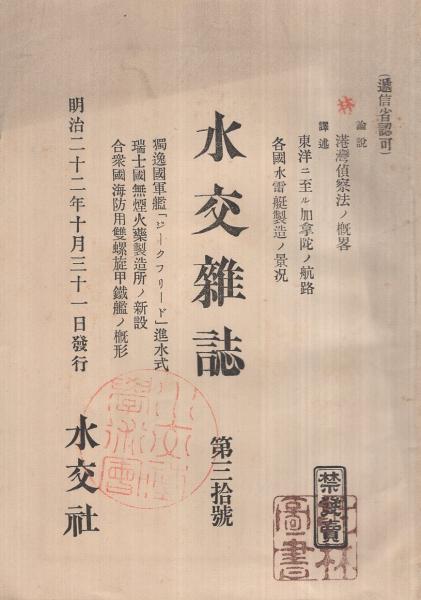 (遞信省認可)
論說
港灣偵察法ノ概畧
譯述
東洋ニ至ル加拿陀ノ航路
各國水雷艇製造ノ景況
水交雜誌
第三拾號
獨逸國軍艦「ジークフリード」進水式
瑞士國無煙火藥製造所ノ新設
合衆國海防用雙螺旋甲鐵艦ノ概形
明治二十二年十月三十一日發行
水交社
禁發賣
圖書